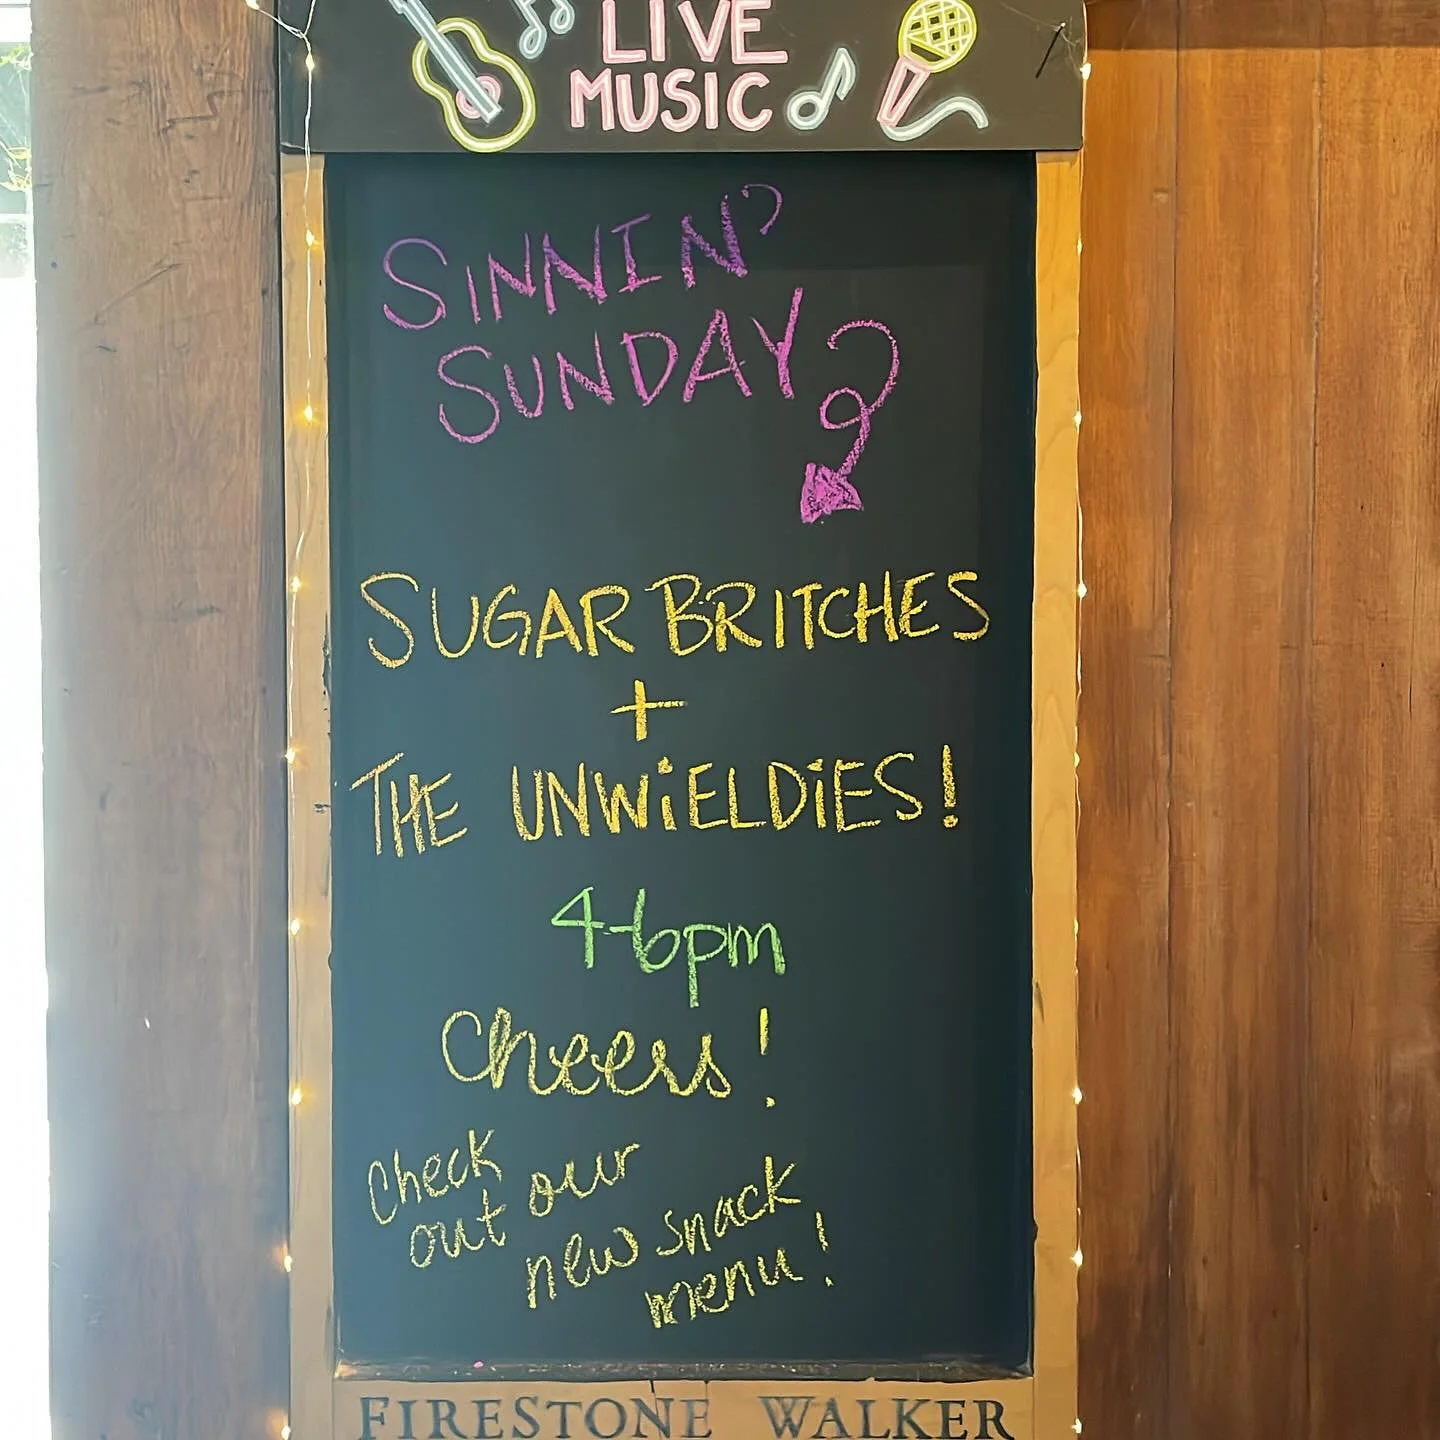 LIVE
MUSIC
SINNIN'
SUNDAY
SUGAR BRITCHES
+
THE UNWiELDiES!
4-6pm
Cheers!
Check
out our
new snack
menu!
FIRESTONE WALKER